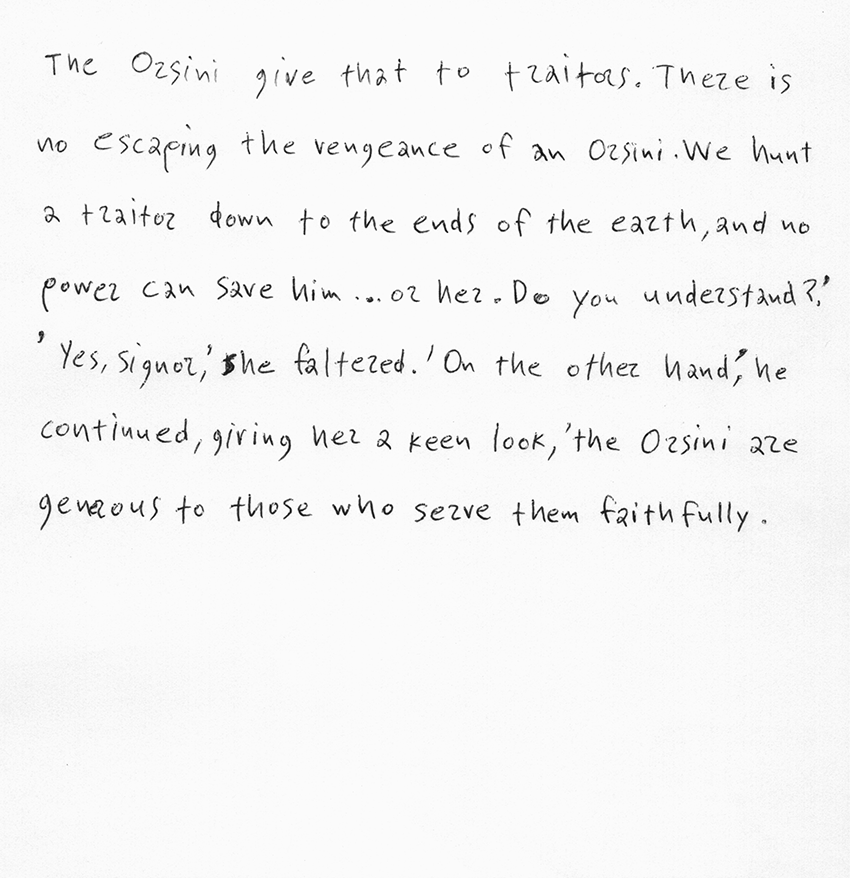 The Orsini give that to traitors. There is
no escaping the vengeance of an Orsini. We hunt
a traitor down to the ends of the earth, and no
power can save him ... or her. Do you understand?.'
'Yes, Signor,' she faltered. 'On the other hand,' he
continued, giving her a keen look, 'the Orsini are
generous to those who serve them faithfully.